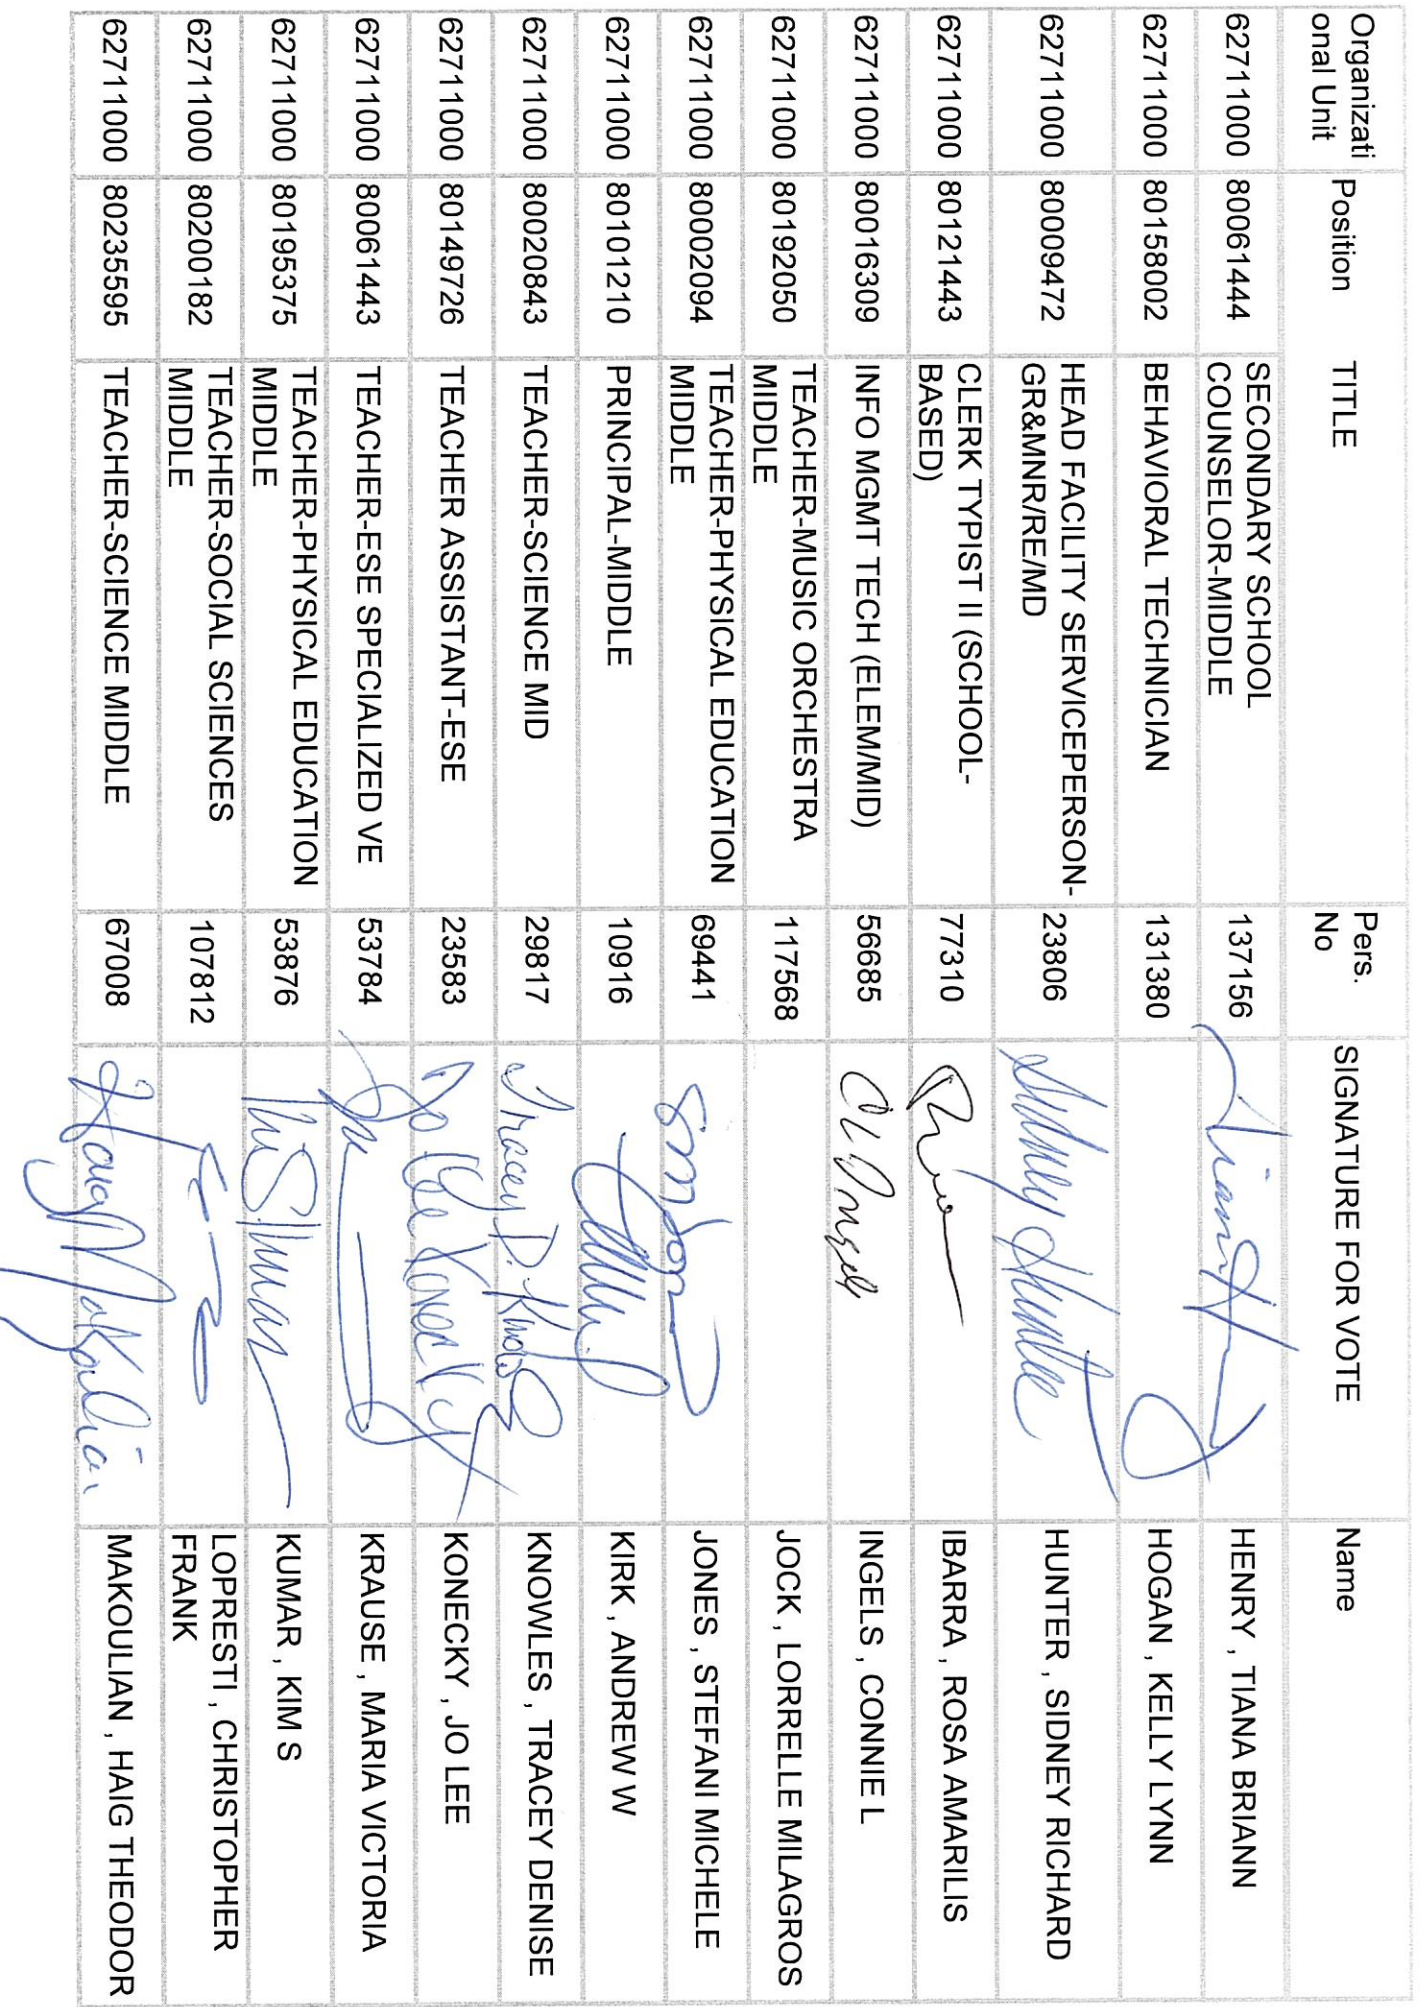 Organizati
onal Unit Position TITLE Pers.
No SIGNATURE FOR VOTE Name
62711000 80061444 SECONDARY SCHOOL
COUNSELOR-MIDDLE 137156 HENRY , TIANA BRIANN
62711000 80158002 BEHAVIORAL TECHNICIAN 131380 HOGAN , KELLY LYNN
62711000 80009472 HEAD FACILITY SERVICEPERSON-
GR&MNR/RE/MD 23806 Sidney Hunter HUNTER , SIDNEY RICHARD
62711000 80121443 CLERK TYPIST II (SCHOOL-
BASED) 77310 IBARRA , ROSA AMARILIS
62711000 80016309 INFO MGMT TECH (ELEM/MID) 56685 INGELS , CONNIE L
62711000 80192050 TEACHER-MUSIC ORCHESTRA
MIDDLE 117568 JOCK , LORRELLE MILAGROS
62711000 80002094 TEACHER-PHYSICAL EDUCATION
MIDDLE 69441 JONES , STEFANI MICHELE
62711000 80101210 PRINCIPAL-MIDDLE 10916 KIRK , ANDREW W
62711000 80020843 TEACHER-SCIENCE MID 29817 Tracey D. Knowles KNOWLES , TRACEY DENISE
62711000 80149726 TEACHER ASSISTANT-ESE 23583 Jo Lee Konecky KONECKY , JO LEE
62711000 80061443 TEACHER-ESE SPECIALIZED VE 53784 KRAUSE , MARIA VICTORIA
62711000 80195375 TEACHER-PHYSICAL EDUCATION
MIDDLE 53876 KUMAR , KIM S
62711000 80200182 TEACHER-SOCIAL SCIENCES
MIDDLE 107812 LOPRESTI , CHRISTOPHER
FRANK
62711000 80235595 TEACHER-SCIENCE MIDDLE 67008 Haig Makoulian MAKOULIAN , HAIG THEODOR